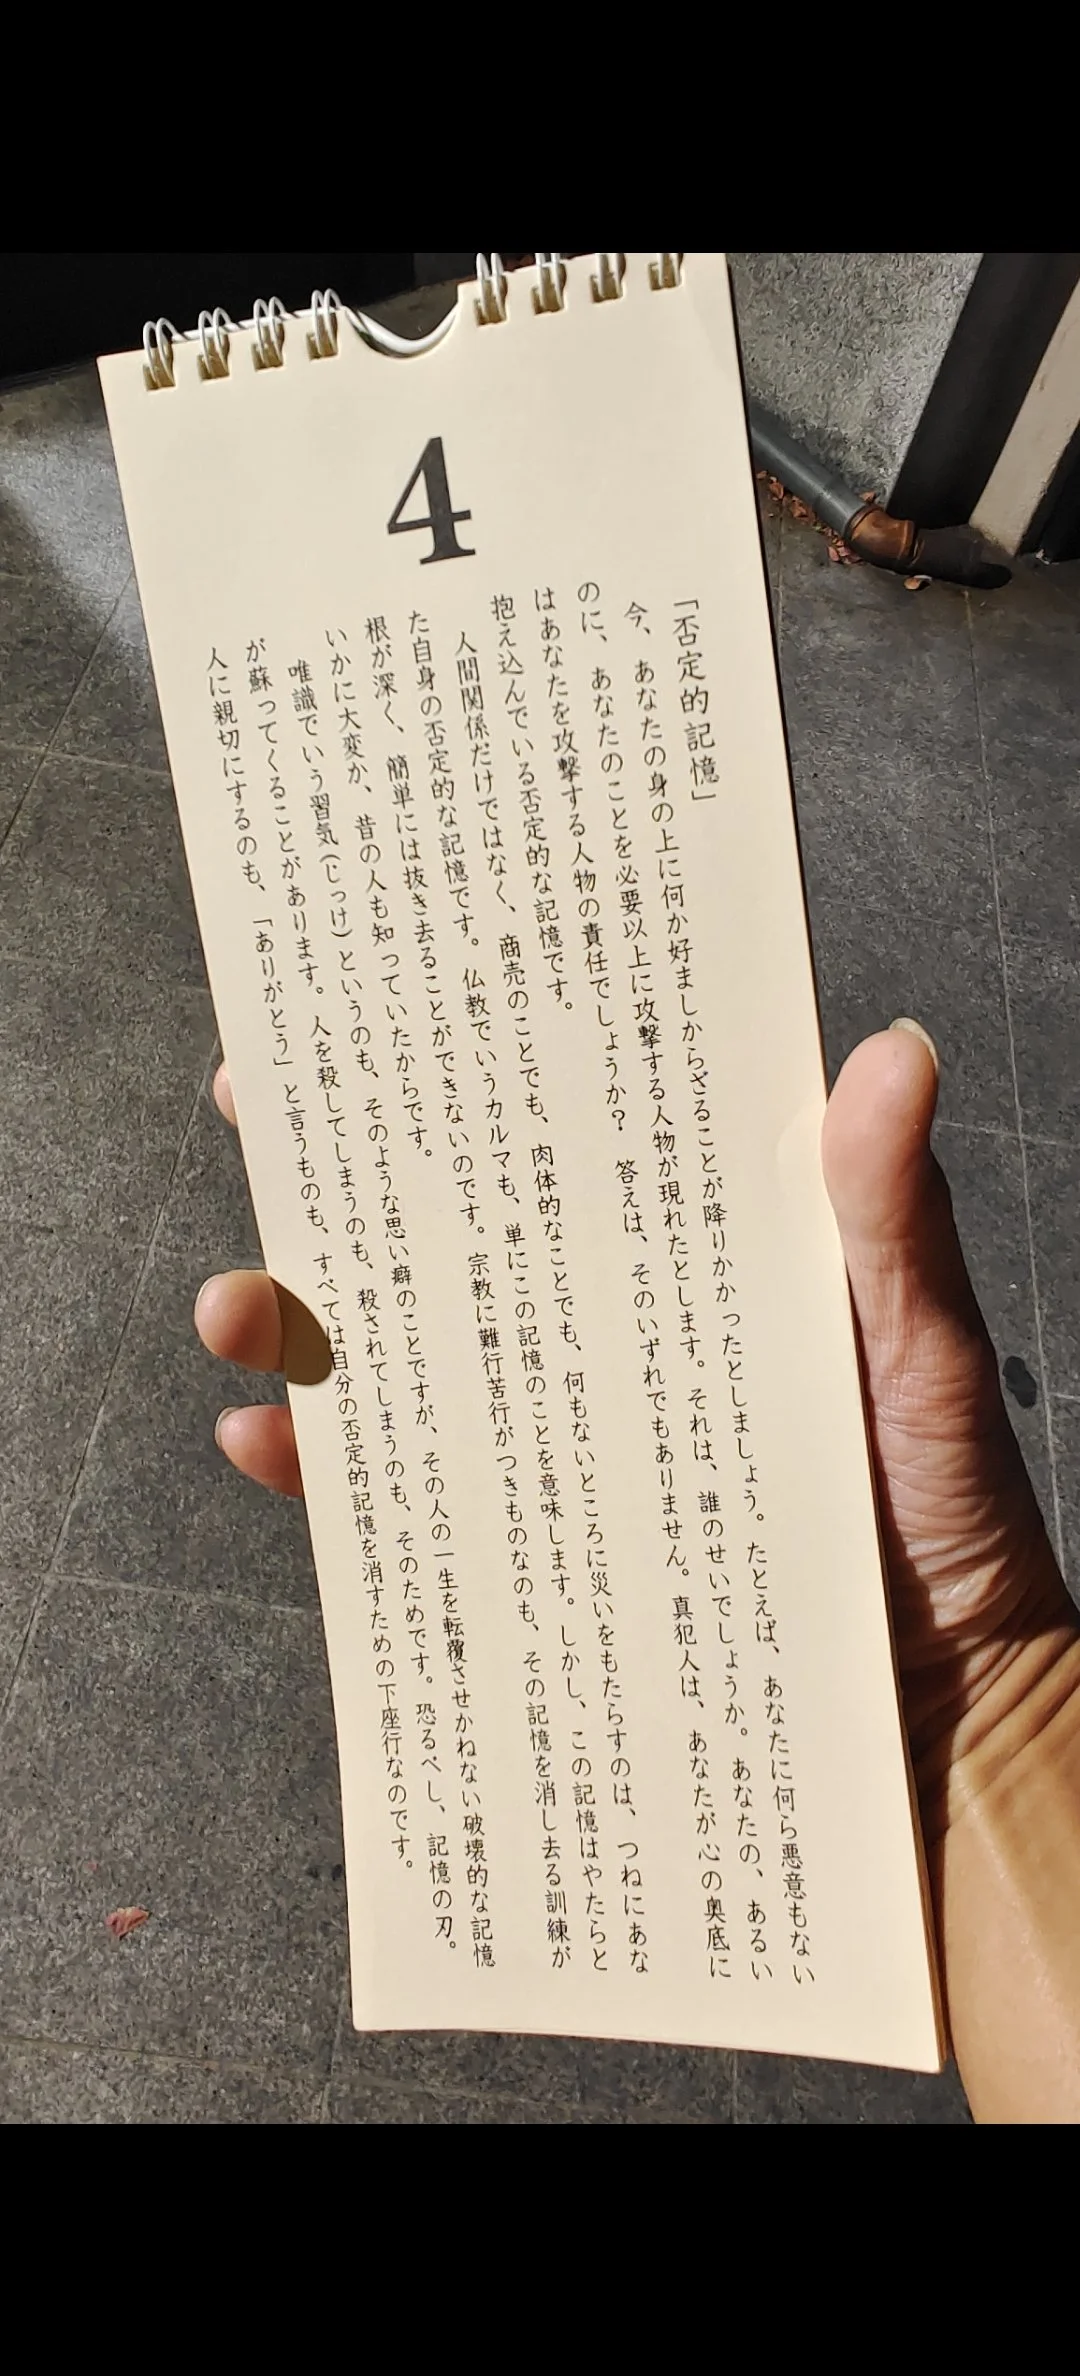 4
「否定的記憶」
今、あなたの身の上に何か好ましからざることが降りかかったとしましょう。たとえば、あなたに何ら悪意もない
のに、あなたのことを必要以上に攻撃する人物が現れたとします。それは、誰のせいでしょうか。あなたの、あるい
はあなたを攻撃する人物の責任でしょうか？　答えは、そのいずれでもありません。真犯人は、あなたが心の奥底に
抱え込んでいる否定的な記憶です。
人間関係だけではなく、商売のことでも、肉体的なことでも、何もないところに災いをもたらすのは、つねにあな
た自身の否定的な記憶です。仏教でいうカルマも、単にこの記憶のことを意味します。しかし、この記憶はやたらと
根が深く、簡単には抜き去ることができないのです。宗教に難行苦行がつきものなのも、その記憶を消し去る訓練が
いかに大変か、昔の人も知っていたからです。
唯識でいう習気（じっけ）というのも、そのような思い癖のことですが、その人の一生を転覆させかねない破壊的な記憶
が蘇ってくることがあります。人を殺してしまうのも、殺されてしまうのも、そのためです。恐るべし、記憶の刃。
人に親切にするのも、「ありがとう」と言うものも、すべては自分の否定的記憶を消すための下座行なのです。